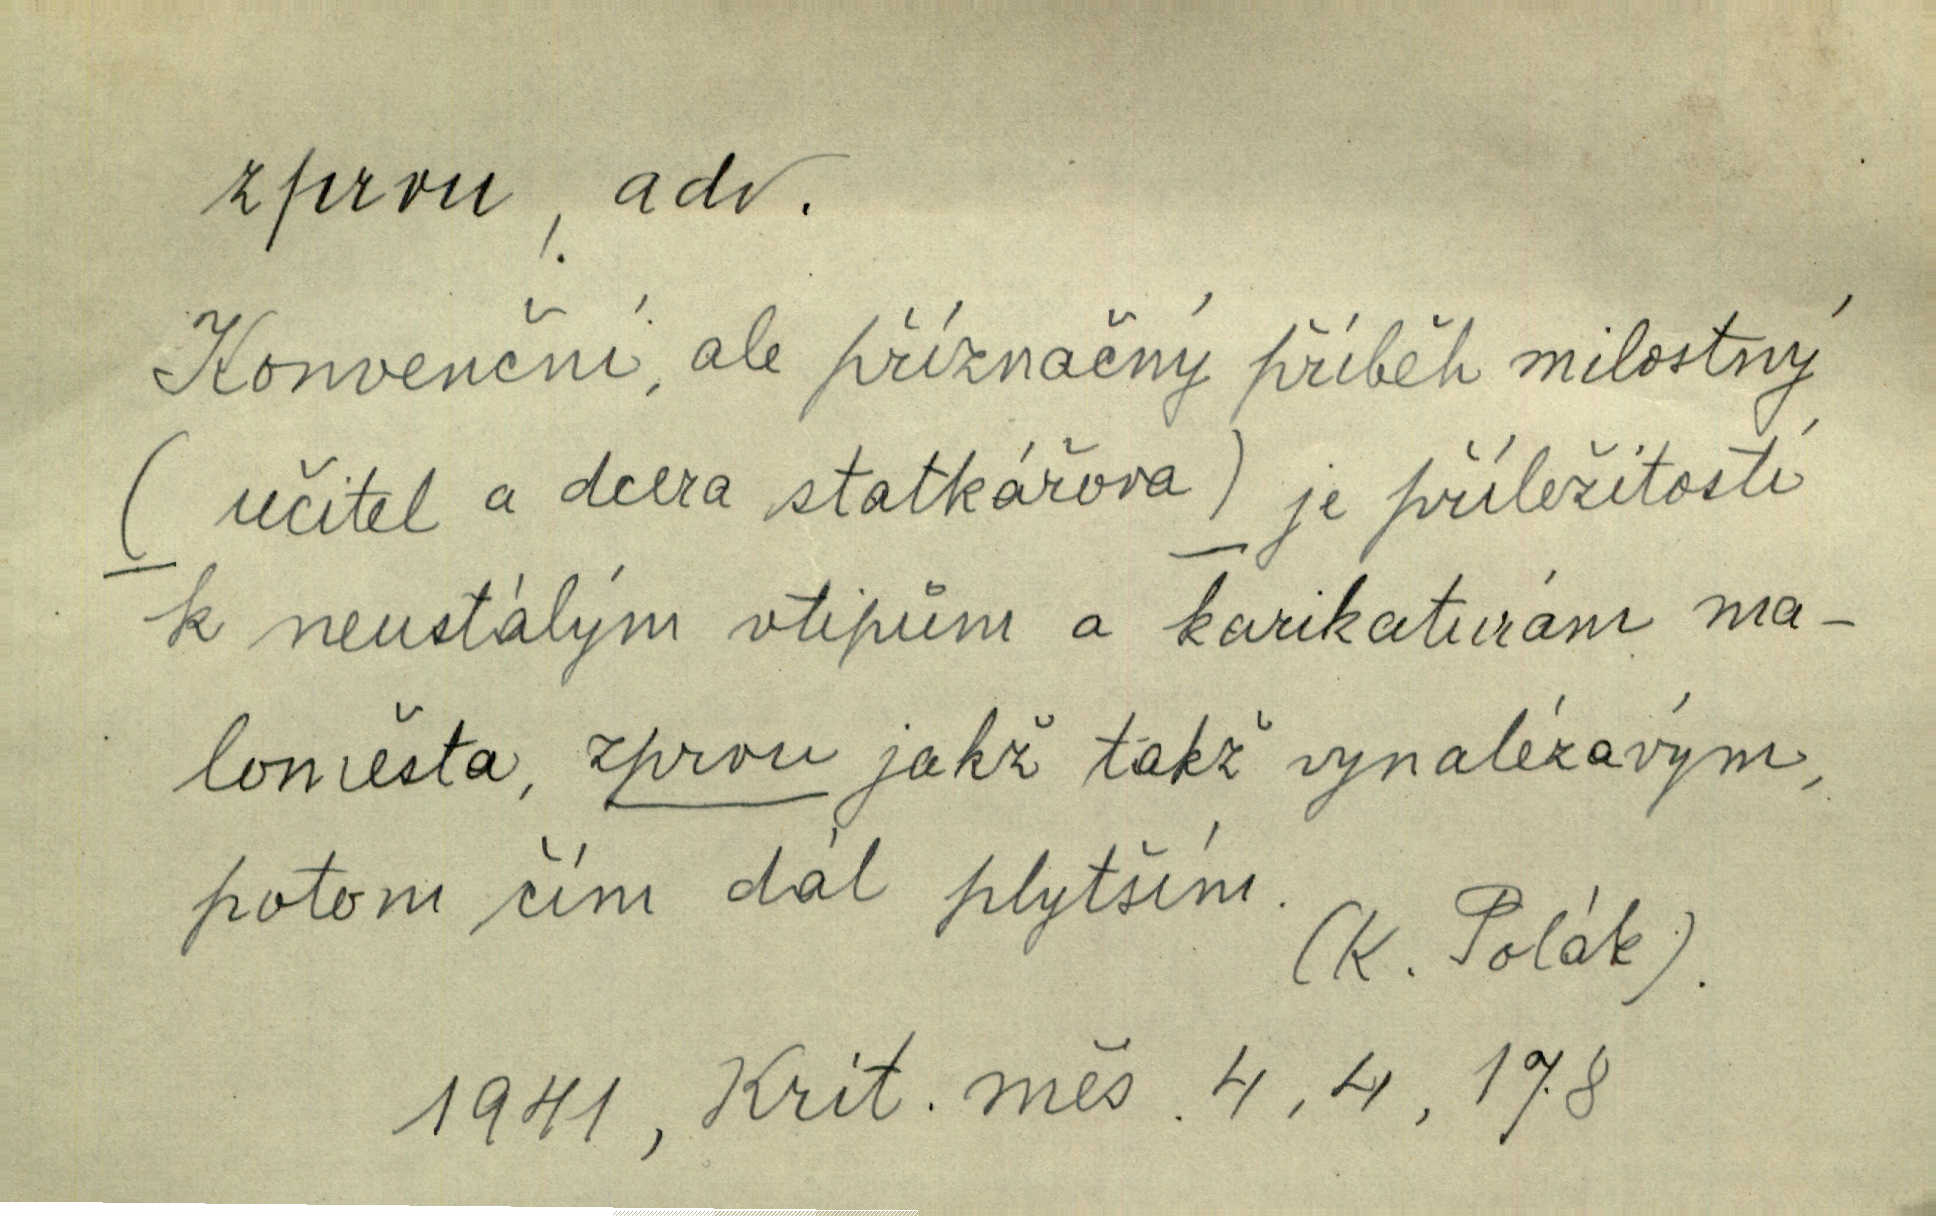 zprvu, adv.
Konvenční, ale příznačný příběh milostný
(učitel a dcera statkářova) je příležitostí
k neustálým vtipům a karikaturám ma-
loměsta, zprvu jakž takž vynalézavým,
potom čím dál plytším.
(K. Polák).
1941, Krit. měs. 4, 4, 178